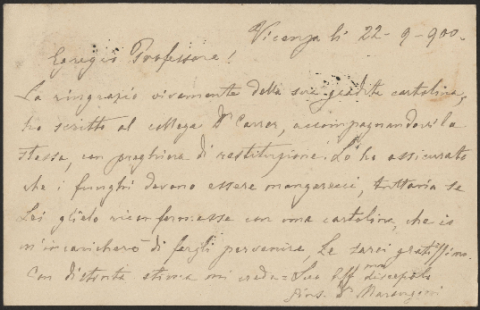 Vicenza li 22-9-900.
Egregio Professore!
La ringrazio vivamente della sua gradita cartolina,
ho scritto al collega Dr Carrer, accompagnandovi la
stessa, con preghiera di restituzione. Lo ho assicurato
che i funghi devono essere mangerecci, tuttavia se
Lei glielo riconfermasse con una cartolina, che io
m'incaricherò di fargli pervenire, Le sarei gratissimo.
Con distinta stima mi creda = Suo Aff mo discepolo
Dr Marangoni